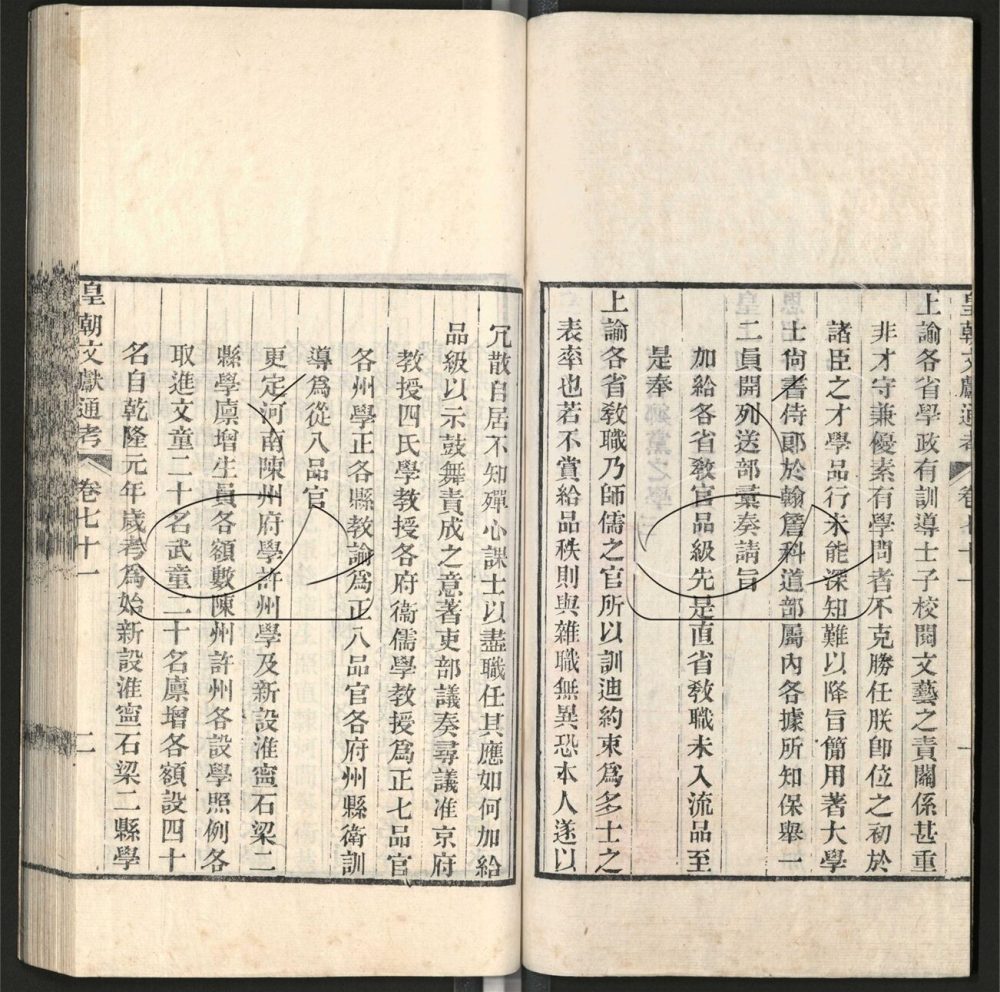 皇朝文獻通考 卷七十一 一
上諭各省學政有訓導士子校閱文藝之責關係甚重
非才守兼優素有學問者不克勝任朕卽位之初於
諸臣之才學品行未能深知難以降旨簡用著大學
士尙書侍郞於翰詹科道部屬內各據所知保舉一
二員開列送部彙奏請旨
加給各省敎官品級先是直省敎職未入流品至
是奉
上諭各省敎職乃師儒之官所以訓迪約束爲多士之
表率也若不賞給品秩則與雜職無異恐本人遂以
冗散自居不知殫心課士以盡職任其應如何加給
品級以示鼓舞責成之意著吏部議奏尋議准京府
敎授四氏學敎授各府衞儒學敎授爲正七品官
各州學正各縣敎諭爲正八品官各府州縣衞訓
導爲從八品官
更定河南陳州府學許州學及新設淮寗石梁二
縣學廩增生員各額數陳州許州各設學照例各
取進文童二十名武童二十名廩增各額設四十
名自乾隆元年歲考爲始新設淮寗石梁二縣學
皇朝文獻通考 卷七十一 二